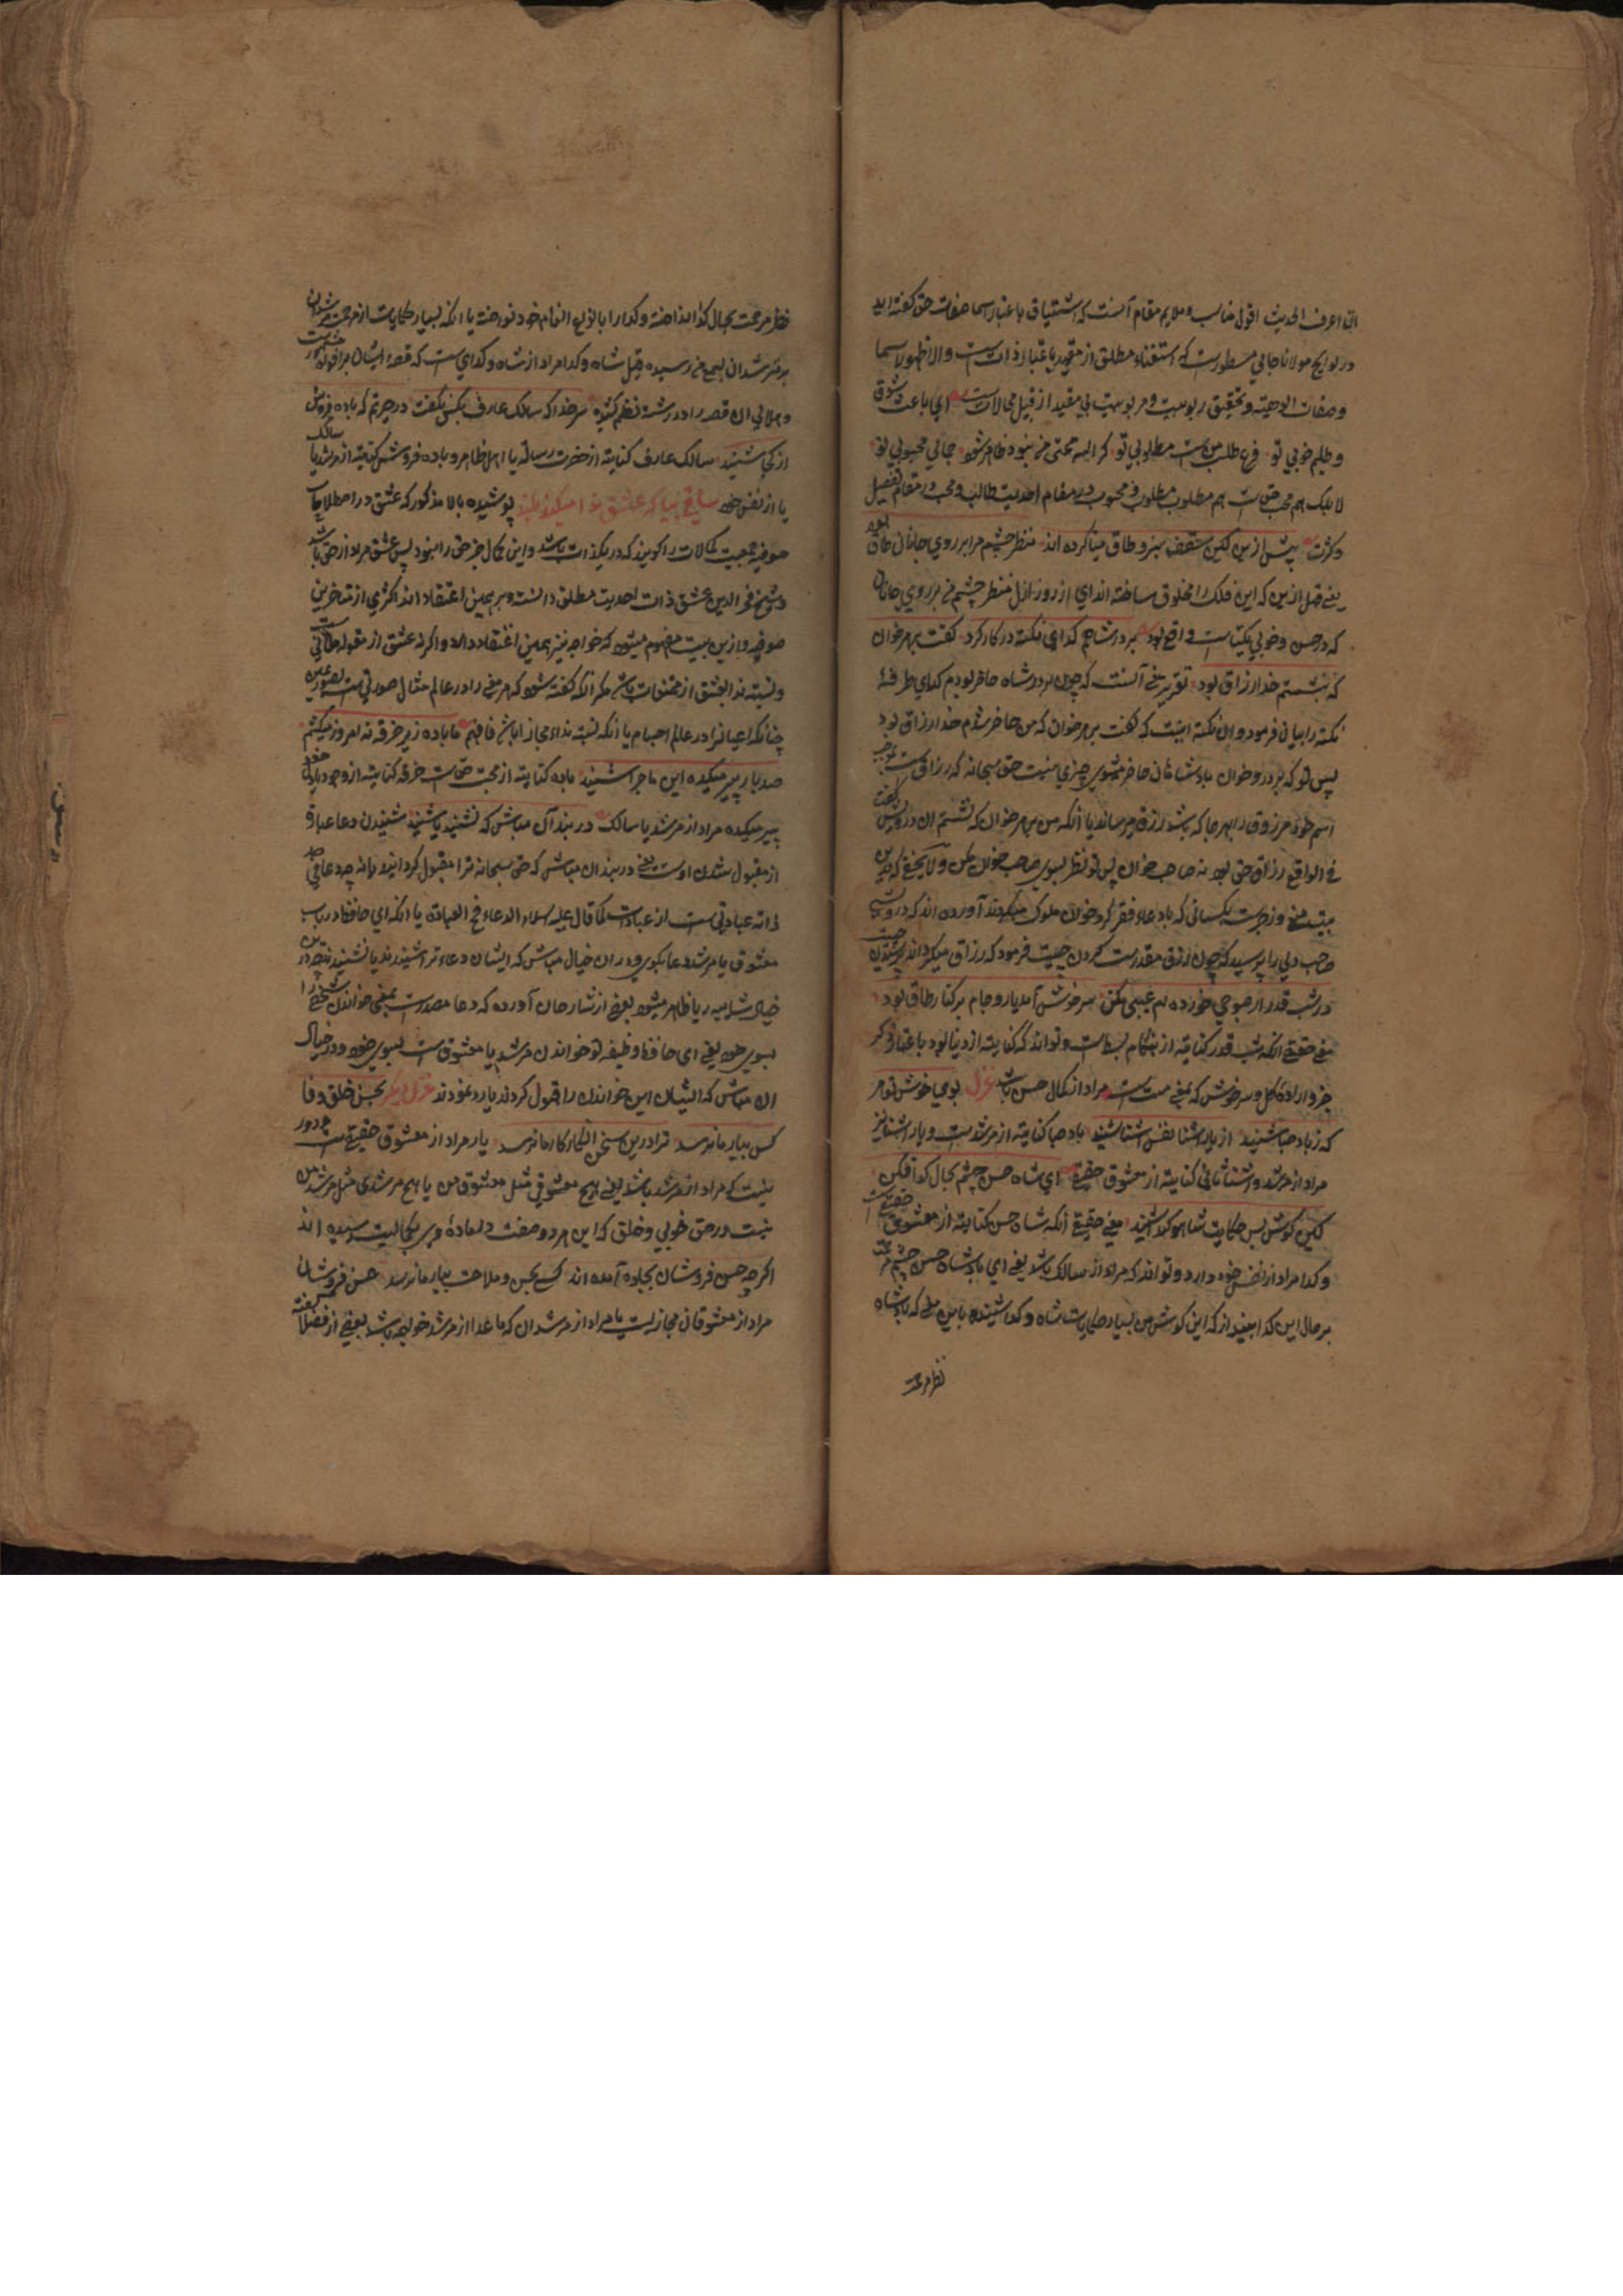 ان اعرف الحدیث اقول مناسب و ملایم مقام آنست که اشتیاق باعتبار اسما صفات حق گفته اید
در لوایح مولانا جامی مسطورست که استغناء مطلق از مقید باعتبار ذات است والا ظهور اسما
و صفات الوهیته و تحقیق ربوبیت و مربوبیت بی مقید از قبیل محالات است ای باعث شوق
و طلبم خوبی تو فرع طلب منست مطلوبی تو گر اینه محبی من نبود ظاهر نشود جمالی محبوبی تو
لا بلک هم محب حق است هم مطلوب مطلوب و محبوب در مقام احدیت طالب و محب در مقام تفصیل
و کثرت پیش ازین کین سقف سبز و طاق مینا کرده اند منظر چشم مرا ابروی جانان طاق بود
یعنی قبل ازین که این فلک را مخلوق ساخته اند ای از روز ازل منظر چشم من بر روی جانان
که در حسن و خوبی یکتاست واقع بود بر در شاهم گدای نکته در کار کرد گفت بر هر خوان
که بنشستم خدا رزاق بود تقریر معنی آنست که چون بر در شاه حاضر بودم گدای طرفه
نکته را بیانی فرمود و ان نکته اینست که گفت بر هر خوان که من حاضر شدم خدا رزاق بود
پس تو که بر در و خوان بادشاهان حاضر میشوی چیزی نیست حق سبحانه که رزاق است بموجب
اسم خود مرزوق را بهر جا که باشد رزق میرساند یا آنکه من بر هر خوان که نشستم ان درویش گفت
فی الواقع رزاق حق بود نه صاحب خوان پس تو نظر بسوی صاحب خوان مکن ولا یخفی که درین
بیت منع و زجرست بکسانی که باد عاء فقر گرد خوان ملوک میگردند آورده اند که درویشی
صاحب دلی را پرسید که چون رزق مقدرست گردن چیست فرمود که رزاق میگرداند پرسیدن چیست
در شب قدر ار صبوحی خورده ام عیبم مکن سرخوش آمد یار و جام بر کنار طاق بود
معنی حقیقی آنکه شب قدر کنایته از هنگام بسط است و تواند که کنایته از دنیا بود باعتبار ذکر
جزو اراده کل و سرخوش که بمعنی مست است مراد از کمال حسن باشد غزل بوی خوش تو هر
که ز باد صبا شنید از یار اشنا نفس اشنا شنید باد صبا کنایته از مرشدست و یار اشنا نیز
مراد از مرشد و اشنا ثانی کنایته از معشوق حقیقی ای شاه حسن چشم بحال گدا فکن
کین گوش بس حکایت شاه و گدا شنید معنی حقیقی آنکه شاه حسن کنایته از معشوق حقیقی است
و گدا مراد از نفس خود دارد و تواند که مراد از سالک باشد یعنی ای بادشاه حسن چشم مرحمت
بر حال این گدا بینداز که این گوش من بسیار حکایات شاه و گدا شنیده باین معنی که بادشاه
نظر مرحمت
نظر مرحمت بحال گدا انداخته و گدا را بانواع انعام خود نواخته یا انکه بسیار حکایات از مرحمت مرشدان
بر مسترشدان بسمع من رسیده و قیل شاه و گدا مراد از شاه و گدای است که قصه ایشان بر افواه مشهور است
و هلالی ان قصه را در رشته نظم کشیده سر خدا که سالک عارف بکس نگفت در حیرتم که باده فروش
از کجا شنید سالک عارف کنایته از حضرت رسالة یا اهل ظاهر و باده فروش کنایته از مرشد یا سالک
یا از نفس خود ساقی بیا که عشق ندا میکند بلند پوشیده بالا مذکور که عشق در اصطلاحات
صوفیه جمعیت کمالات را گویند که در یک ذات باشد و این کمال جز حق را نبود پس عشق مراد از حق باشد
و شیخ فخر الدین عشق ذات احدیت مطلق دانسته و برهمین اعتقاد اند اکثری از متاخرین
صوفیه و ازین بیت مفهوم میشود که خواجه نیز همین اعتقاد دارد و اگر نه عشق از مقوله معانی است
و نسبته ندا بعشق از ممتنعات باشد مگر آنکه گفته شود که هر معنی را در عالم مثال صورتی است بصور عین
چنانکه اعیانرا در عالم اجسام یا انکه نسبته نداء مجاز باشد فافهم ما باده زیر خرقه نه امروز میکشیم
صد بار پیر میکده این ماجرا شنید باده کنایته از محبت حق است خرقه کنایته از وجود یا دل خود
پیر میکده مراد از مرشد یا سالک در بند آن مباش که نشنید یا شنید شنیدن دعا عبارة
از مقبول شدن اوست یعنی در بند ان مباش که حق سبحانه ترا مقبول گرداند یا نه چه دعا فی حد
ذاته عبادتی ست از عبادت کما قال علیه السلام الدعاء مخ العبادة یا انکه ای حافظ در باب
معشوق یا مرشد دعا بگوی و در ان خیال مباش که ایشان دعاء ترا شنیدند یا نشنیدند چه درین
خیال شایبه ریا ظاهر میشود بعضی از شارحان آورده که دعا مصدرست بمعنی خواندن شخصی را
بسوی خود یعنی ای حافظ وظیفه تو خواندن مرشد یا معشوق ست بسوی خود و در خیال
ان مباش که ایشان این خواندن را قبول کردند یا رد نمودند غزل دیگر بحسن خلق و وفا
کس بیار ما نرسد ترا درین سخن انکار کار ما نرسد یار مراد از معشوق حقیقی ست و دور
نیست که مراد از مرشد باشد یعنی هیچ معشوقی مثل معشوق من یا هیچ مرشدی مثل مرشد من
نیست در حق خوبی و خلق که این هر دو صفت در ماده وی بکمالیت رسیده اند
اگرچه حسن فروشان بجلوه آمده اند کسی بحسن و ملاحت بیار ما نرسد حسن فروشان
مراد از معشوقان مجازیست یا مراد از مرشدان که ما عدا از مرشد خواجه باشد بعضی از فضلا گفته